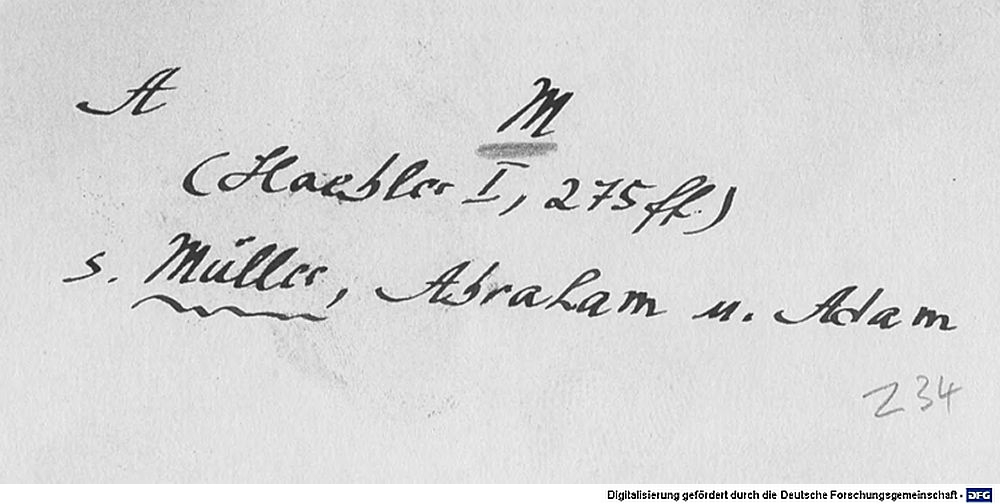 A M
(Haebler I, 275 ff.)
s. Müller, Abraham u. Adam
Z 34
Digitalisierung gefördert durch die Deutsche Forschungsgemeinschaft - DFG